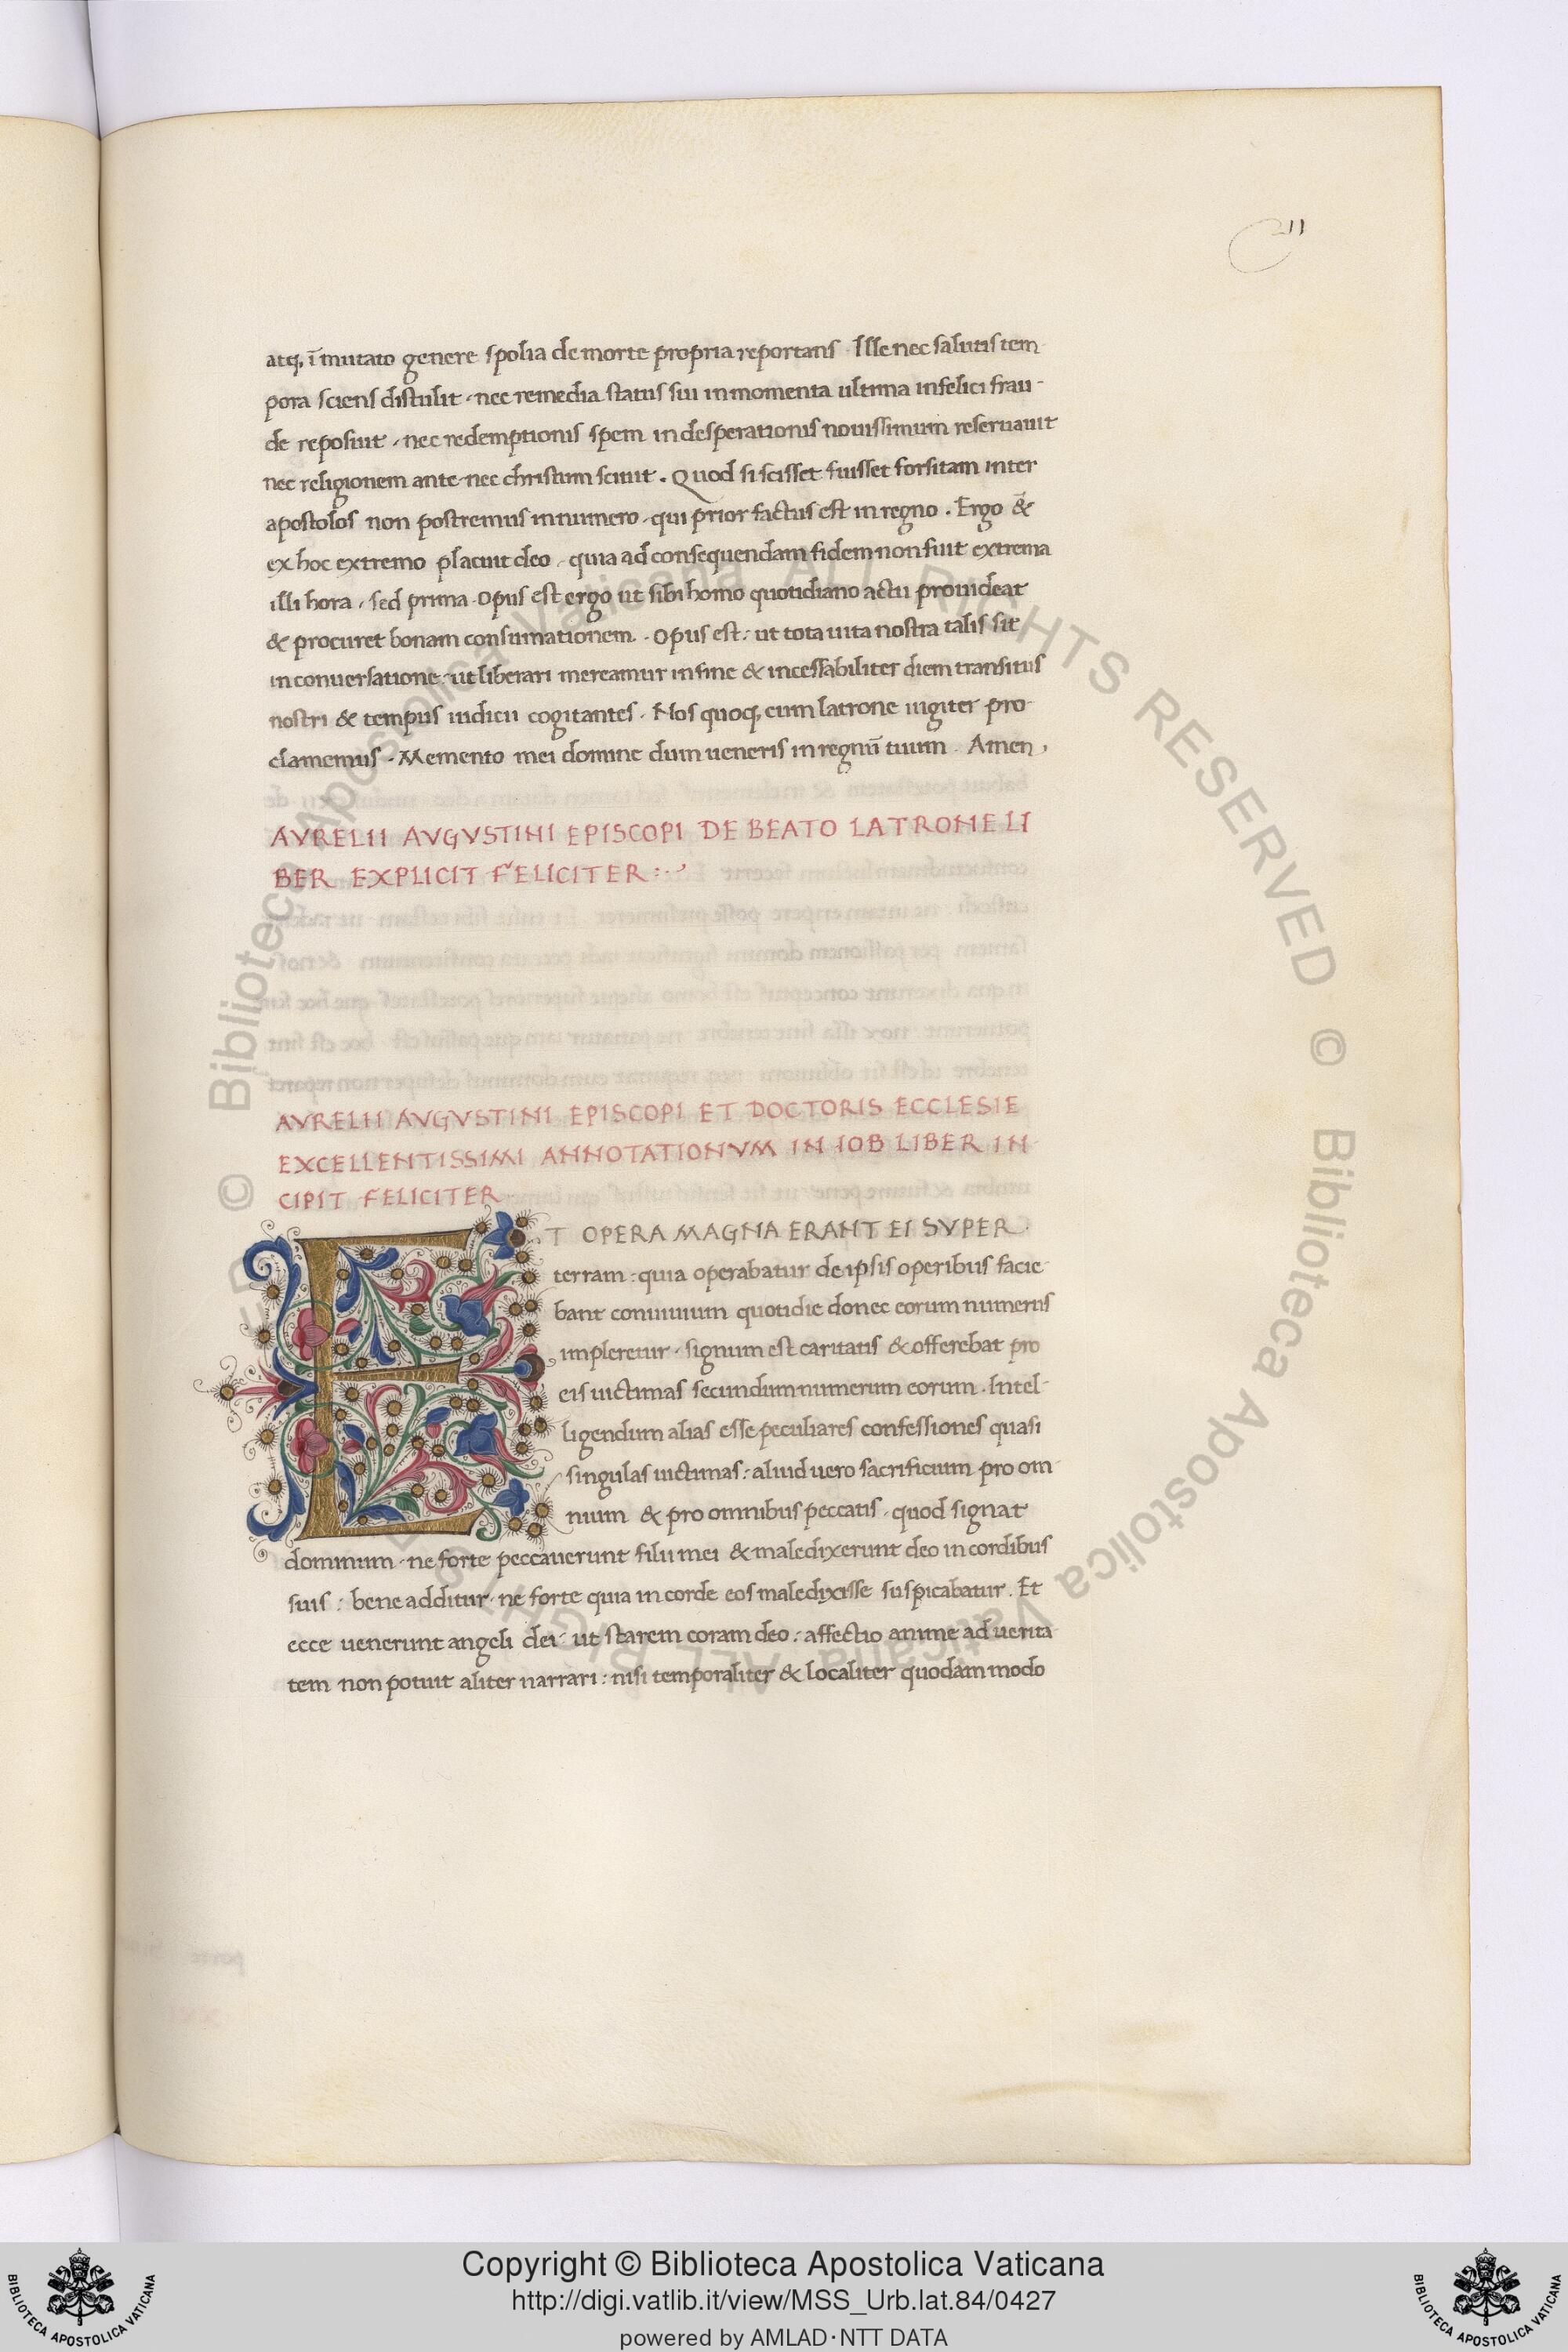 211
atq, ī mutato genere spolia de morte propria reportans · Ille nec salutis tem
pora sciens distulit · nec remedia status sui in momenta ultima infelici frau-
de reposuit · nec redemptionis spem in desperationis nouissimum reseruauit
nec religionem ante nec christum sciuit . Quod si scisset fuisset forsitam inter
apostolos non postremus in numero · qui prior factus est in regno . Ergo &
ex hoc extremo placuit deo · quia ad consequendam fidem non fuit extrema
illi hora · sed prima · opus est ergo ut sibi homo quotidiano actu prouideat
& procuret bonam consumationem · opus est: ut tota uita nostra talis sit
in conuersatione · ut liberari mereamur in fine & incessabiliter diem transitus
nostri & tempus iudicii cogitantes · Nos quoq, cum latrone iugiter pro
clamemus · Memento mei domine dum ueneris in regnū tuum · Amen ,
AVRELII AVGVSTINI EPISCOPI DE BEATO LATRONE LI
BER EXPLICIT FELICITER :·
AVRELII AVGVSTINI EPISCOPI ET DOCTORIS ECCLESIE
EXCELLENTISSIMI ANNOTATIONVM IN IOB LIBER IN
CIPIT FELICITER
ET OPERA MAGNA ERANT EI SVPER
terram : quia operabatur de ipsis operibus facie
bant conuiuium quotidie donec eorum numerus
impleretur · signum est caritatis & offerebat pro
eis uictimas secundum numerum eorum . Intel-
ligendum alias esse peculiares confessiones quasi
singulas uictimas : aliud uero sacrificium pro om
nium & pro omnibus peccatis · quod signat
dominum · ne forte peccauerunt filii mei & maledixerunt deo in cordibus
suis : bene additur · ne forte quia in corde eos maledixisse suspicabatur . Et
ecce uenerunt angeli dei ut starem coram deo : affectio anime ad uerita
tem non potuit aliter narrari : nisi temporaliter & localiter quodam modo
© Biblioteca Apostolica Vaticana ALL RIGHTS RESERVED © Biblioteca Apostolica Vaticana ALL RIGHTS RESERVED
Copyright © Biblioteca Apostolica Vaticana
http://digi.vatlib.it/view/MSS_Urb.lat.84/0427
powered by AMLAD·NTT DATA
BIBLIOTECA APOSTOLICA VATICANA
BIBLIOTECA APOSTOLICA VATICANA